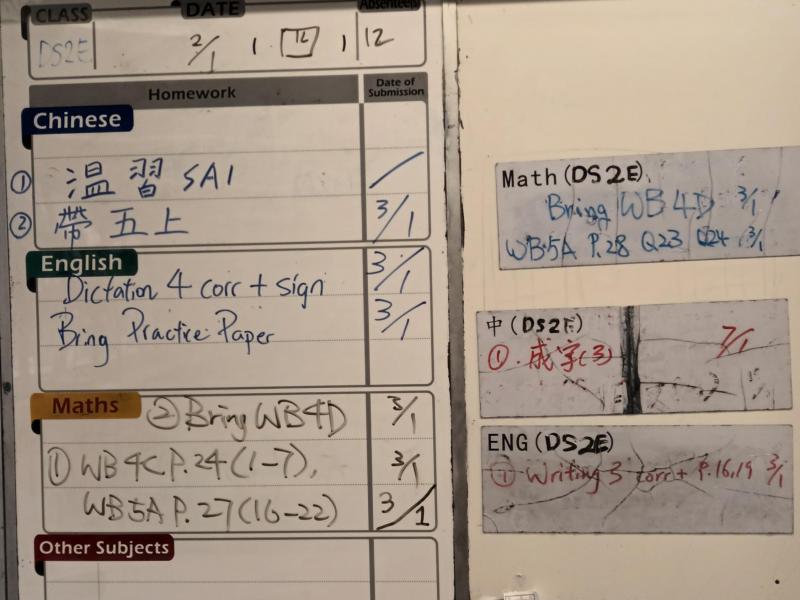 CLASS DATE Absentees
DS2E 2/1 12 12
Homework Date of Submission
Chinese
① 溫習 SA1 /
② 帶五上 3/1
English
Dictation 4 corr + sign 3/1
Bring Practice Paper 3/1
Maths
② Bring WB4D 3/1
① WB4C P.24 (1-7), 3/1
WB5A P.27 (16-22) 3/1
Other Subjects
Math (DS2E)
Bring WB4D 3/1
WB5A P.28 Q23 Q24 3/1
中 (DS2E)
①. 成字(3) 7/1
ENG (DS2E)
Writing 3 corr + P.16,19 3/1